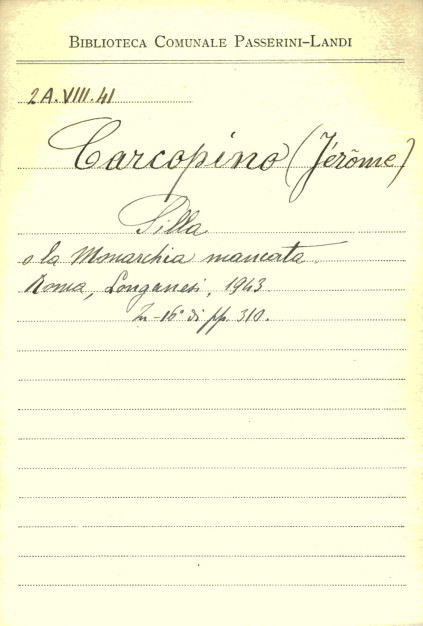 BIBLIOTECA COMUNALE PASSERINI-LANDI
2A.VIII.41
Carcopino (Jérôme)
Silla
o la Monarchia mancata.
Roma, Longanesi, 1943.
In-16° di pp. 310.